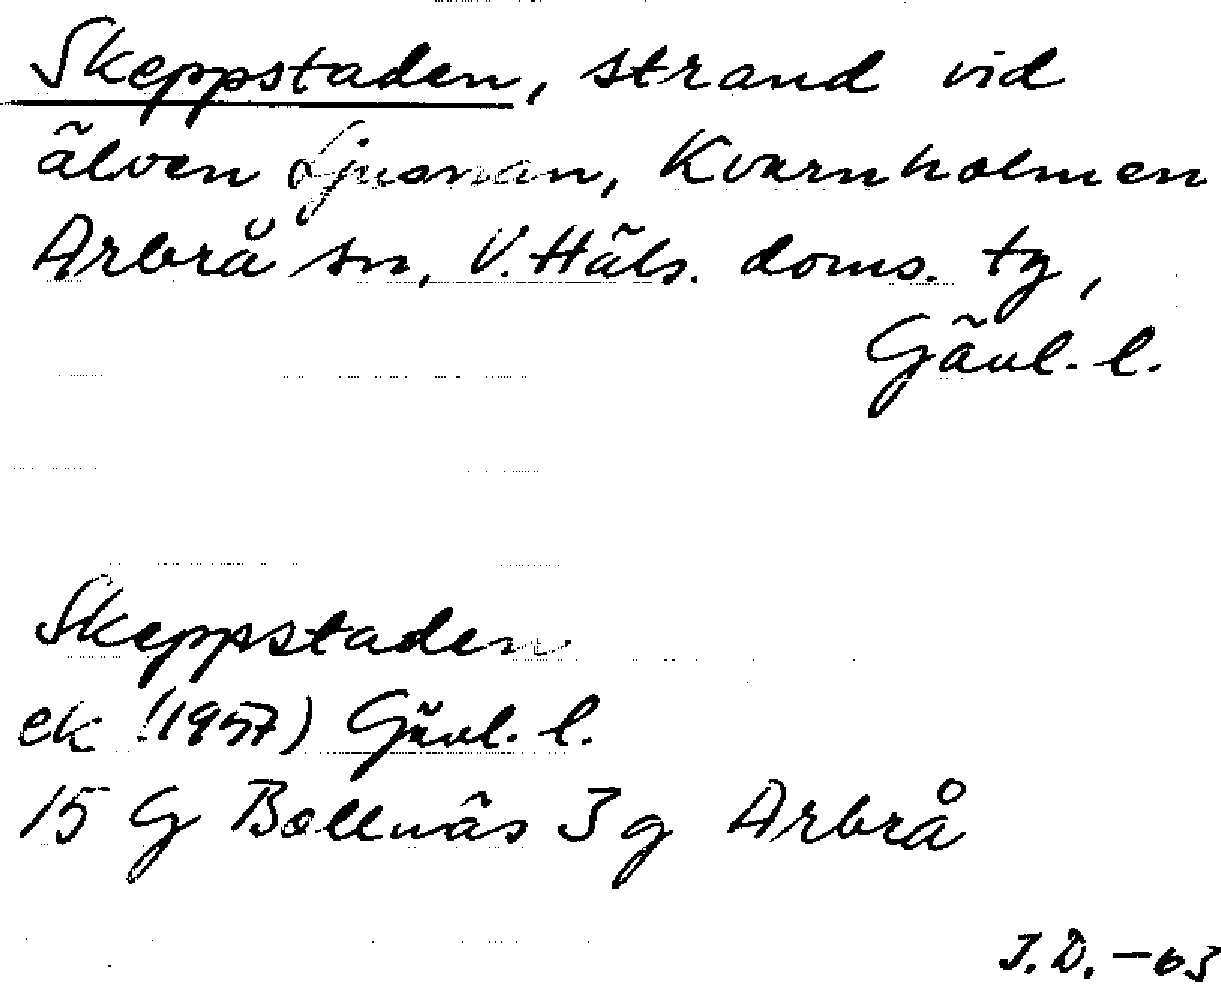 Skeppstaden, strand vid
älven Ljusnan, Kvarnholmen
Arbrå sn, V. Häls. doms. tg,
Gävl. l.
Skeppstaden
ek (1957) Gävl. l.
15 G Bollnäs 3 g Arbrå
J.D. -63